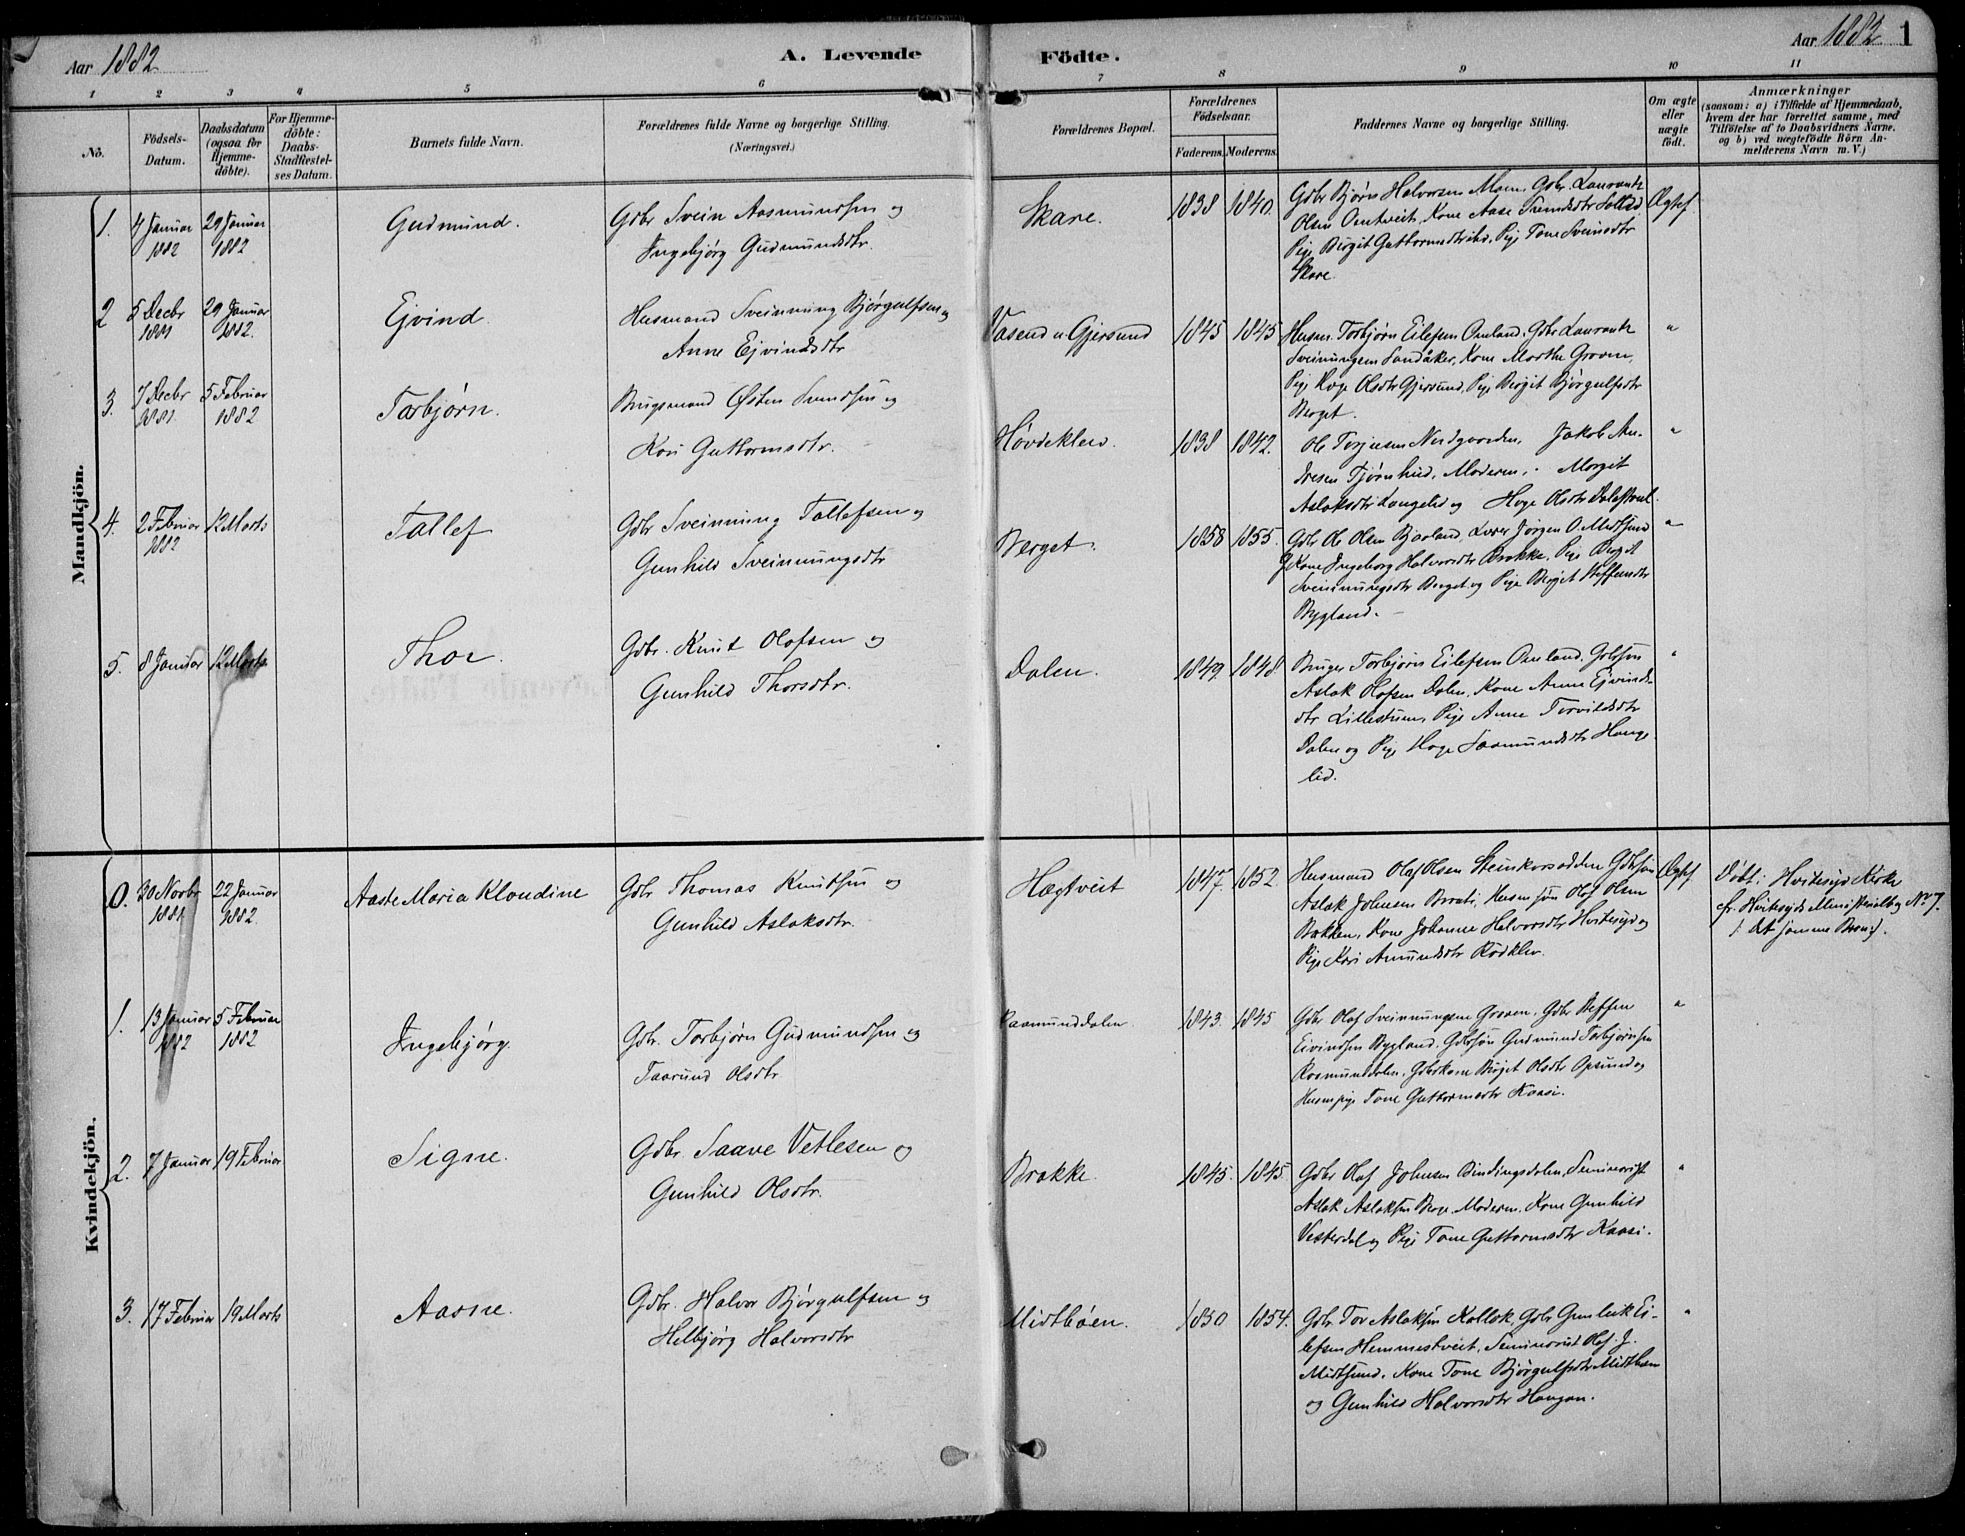 Aar 1882
A. Levende
Födte.
Aar 1882
1
1 2 3 4 5 6 7 8 9 10 11
No.
Födsels-
Datum.
Daabsdatum
(ogsaa for
Hjemme-
döbte).
For Hjemme-
döbte:
Daabs-
Stadfæstel-
ses Datum.
Barnets fulde Navn.
Forældrenes fulde Navne og borgerlige Stilling.
(Næringsvei.)
Forældrenes Bopæl.
Forældrenes
Födselsaar.
Faderens. Moderens.
Faddernes Navne og borgerlige Stilling.
Om ægte
eller
uægte
født.
Anmærkninger
(saasom: a) i Tilfælde af Hjemmedaab,
hvem der har forrettet samme, med
Tilföielse af to Daabsvidners Navne,
og b) ved uægtefödte Börn An-
melderens Navn m. V.)
Mandkjön.
1. 4 Januar
1882
29 Januar
1882
Gudmund.
Gdbr Svein Aasmundsen og
Ingebjørg Gudmundsdtr.
Skare.
1838 1840.
Gdbr Bjørn Halvorsen Moen, Gdbr. Laurants
Olsen Omtveit, Kone Aase
Pige Birgit Guttormsdtr ibd, Pige Tone Sveinsdtr
Skare.
Ægtef
2 5 Decbr
1881
29 Januar
1882.
Ejvind.
Husmand Sveinung Bjørgulfsen og
Anne Ejvindsdtr
Vasend u Gjersund
1845 1845
Husm Torbjørn Eilefsen Omland, Gdbr Laurants
Sveinungsen Sandåker, Kone Marthe Groven,
Pige Hæge Olsdtr Gjersund, Pige Birgit Bjørgulfsdtr
Berget.
"
3. 7 Decbr
1881.
5 Februar
1882
Torbjørn.
Brugsmand Østen Svendsen og
Kari Guttormsdtr.
Høvdeklev.
1838 1842.
Ole Torjusen Nordgaarden, Jakob An-
dresen Tjørnhud, Moderen, Margit
Aslaksdtr Langelid og Hæge Olsdtr
"
4. 2 Februar
1882
12 Marts
Tallef
Gdbr Sveinung Tallefsen og
Gunhild Sveinungsdtr
Berget.
1858 1855.
Gdbr Ole Olsen Bjaaland, Lærer Jørgen O. Midtsund
Gkone Ingeborg Halvorsdtr Brokke, Pige Birgit
Sveinungsdtr Berget og Pige Birgit Steffensdtr
Bygland.
"
5. 8 Januar
12 Marts
Thor.
Gdbr. Knut Olafsen og
Gunhild Thorsdtr.
Dalen.
1849 1848.
Bruger Torbjørn Eilefsen Omland, Gdbsøn
Aslak Olafsen Dalen, Kone Anne Ejvinds-
dtr Lillestuen, Pige Anne Torvildsdtr
Dalen og Pige Hæge Saamundsdtr Hauge
lid.
"
Kvindekjön.
0. 30 Novbr
1881
22 Januar
1882.
Aaste Maria Klaudine
Gdbr Thomas Knudsen og
Gunhild Aslaksdtr.
Hægtveit
1847 1852
Husmand Olaf Olsen Steinkorsodden Gdbsøn
Aslak Johnsen Brati, Husm søn Olaf Olsen
Bakken, Kone Johanne Halvorsdtr Hvitesejd og
Pige Kari Amundsdtr Rødklev.
Ægtef
Døbt i Hvitesejd Kirke
cfr. Hvitesejds Ministerialbog No 7.
(: det samme Barn:).
1. 13 Januar
1882
5 Februar
1882
Ingebjørg.
Gdbr. Torbjørn Gudmundsen og
Taarund Olsdtr
Raamunddalen
1843. 1845
Gdbr Olaf Sveinungsen Groven, Gdbr Steffen
Eivindsen Bygland, Gdbsøn Gudmund Torbjørnsen
Raamunddalen, Gdbrkone Birgit Olsdtr Opsund og
Husm pige Tone Guttormsdtr Kaasi.
"
2. 7 Januar
19 Februar
Signe.
Gdbr. Saave Vetlesen og
Gunhild Olsdtr.
Brokke.
1845. 1845.
Gdbr Olaf Johnsen Bindingsdalen, Seminarist
Aslak Aslaksen Berge, Moderen, Kone Gunhild
Vesterdal og Pige Tone Guttormsdtr Kaasi.
"
3. 17 Februar
19 Marts
Aasne.
Gdbr. Halvor Bjørgulfsen og
Helbjørg Halvorsdtr
Midtbøen.
1850 1854.
Gdbr Tor Aslaksen Kollok, Gdbr Gunleik Ei-
lefsen Hemmestveit, Seminarist Olaf J.
Midtsund, Kone Tone Bjørgulfsdtr Midtbøen
og Gunhild Halvorsdtr Haugan.
"